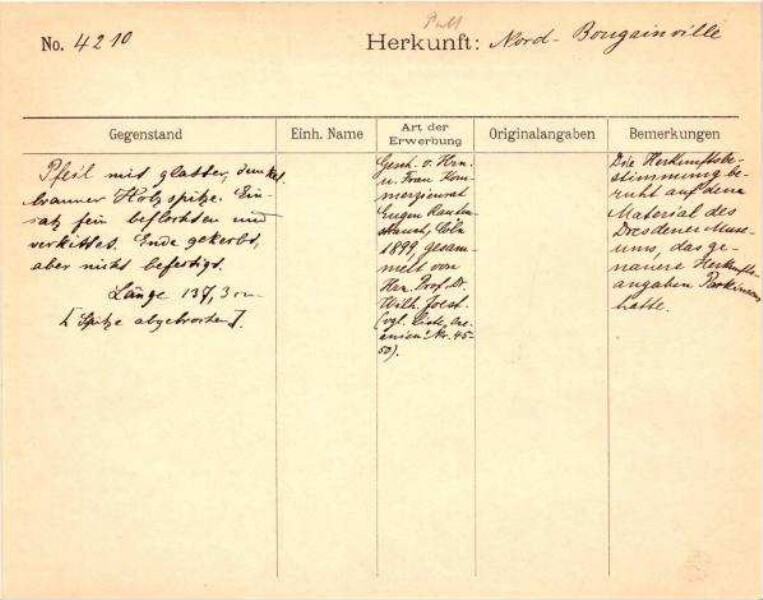 No. 4210
Herkunft: Nord-Bougainville
Gegenstand
Einh. Name
Art der Erwerbung
Originalangaben
Bemerkungen
Pfeil mit glatter, dunkel-
brauner Holzspitze. Ein-
satz fein beflochten und
verkittet. Ende gekerbt,
aber nicht befestigt.
Länge 137,3 cm.
[Spitze abgebrochen].
Gesch. v. Hrn.
u. Frau Kom-
merzienrat
Eugen Rauten-
strauch, Cöln
1899, gesam-
melt von
Hrn. Prof. Dr.
Wilh. Joest.
(vgl. Liste „Oce-
anien“ Nr. 45-
50).
Die Herkunftsbe-
stimmung be-
ruht auf dem
Material des
Dresdener Muse-
ums, das ge-
nauere Herkunfts-
angaben Parkinsons
hatte.